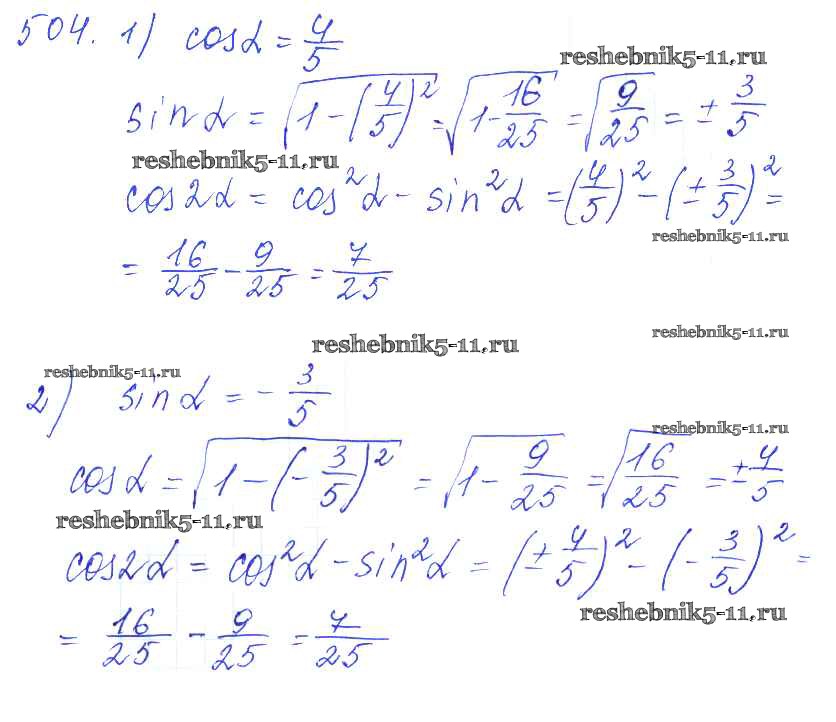 504. 1) cosα = 4/5
reshebnik5-11.ru
sinα = √(1-(4/5)²) = √(1-16/25) = √(9/25) = ± 3/5
reshebnik5-11.ru
cos2α = cos²α - sin²α = (4/5)² - (± 3/5)² =
reshebnik5-11.ru
= 16/25 - 9/25 = 7/25
reshebnik5-11.ru
reshebnik5-11.ru
reshebnik5-11.ru
2) sinα = - 3/5
reshebnik5-11.ru
cosα = √(1-(-3/5)²) = √(1-9/25) = √(16/25) = ± 4/5
reshebnik5-11.ru
cos2α = cos²α - sin²α = (± 4/5)² - (- 3/5)² =
reshebnik5-11.ru
= 16/25 - 9/25 = 7/25